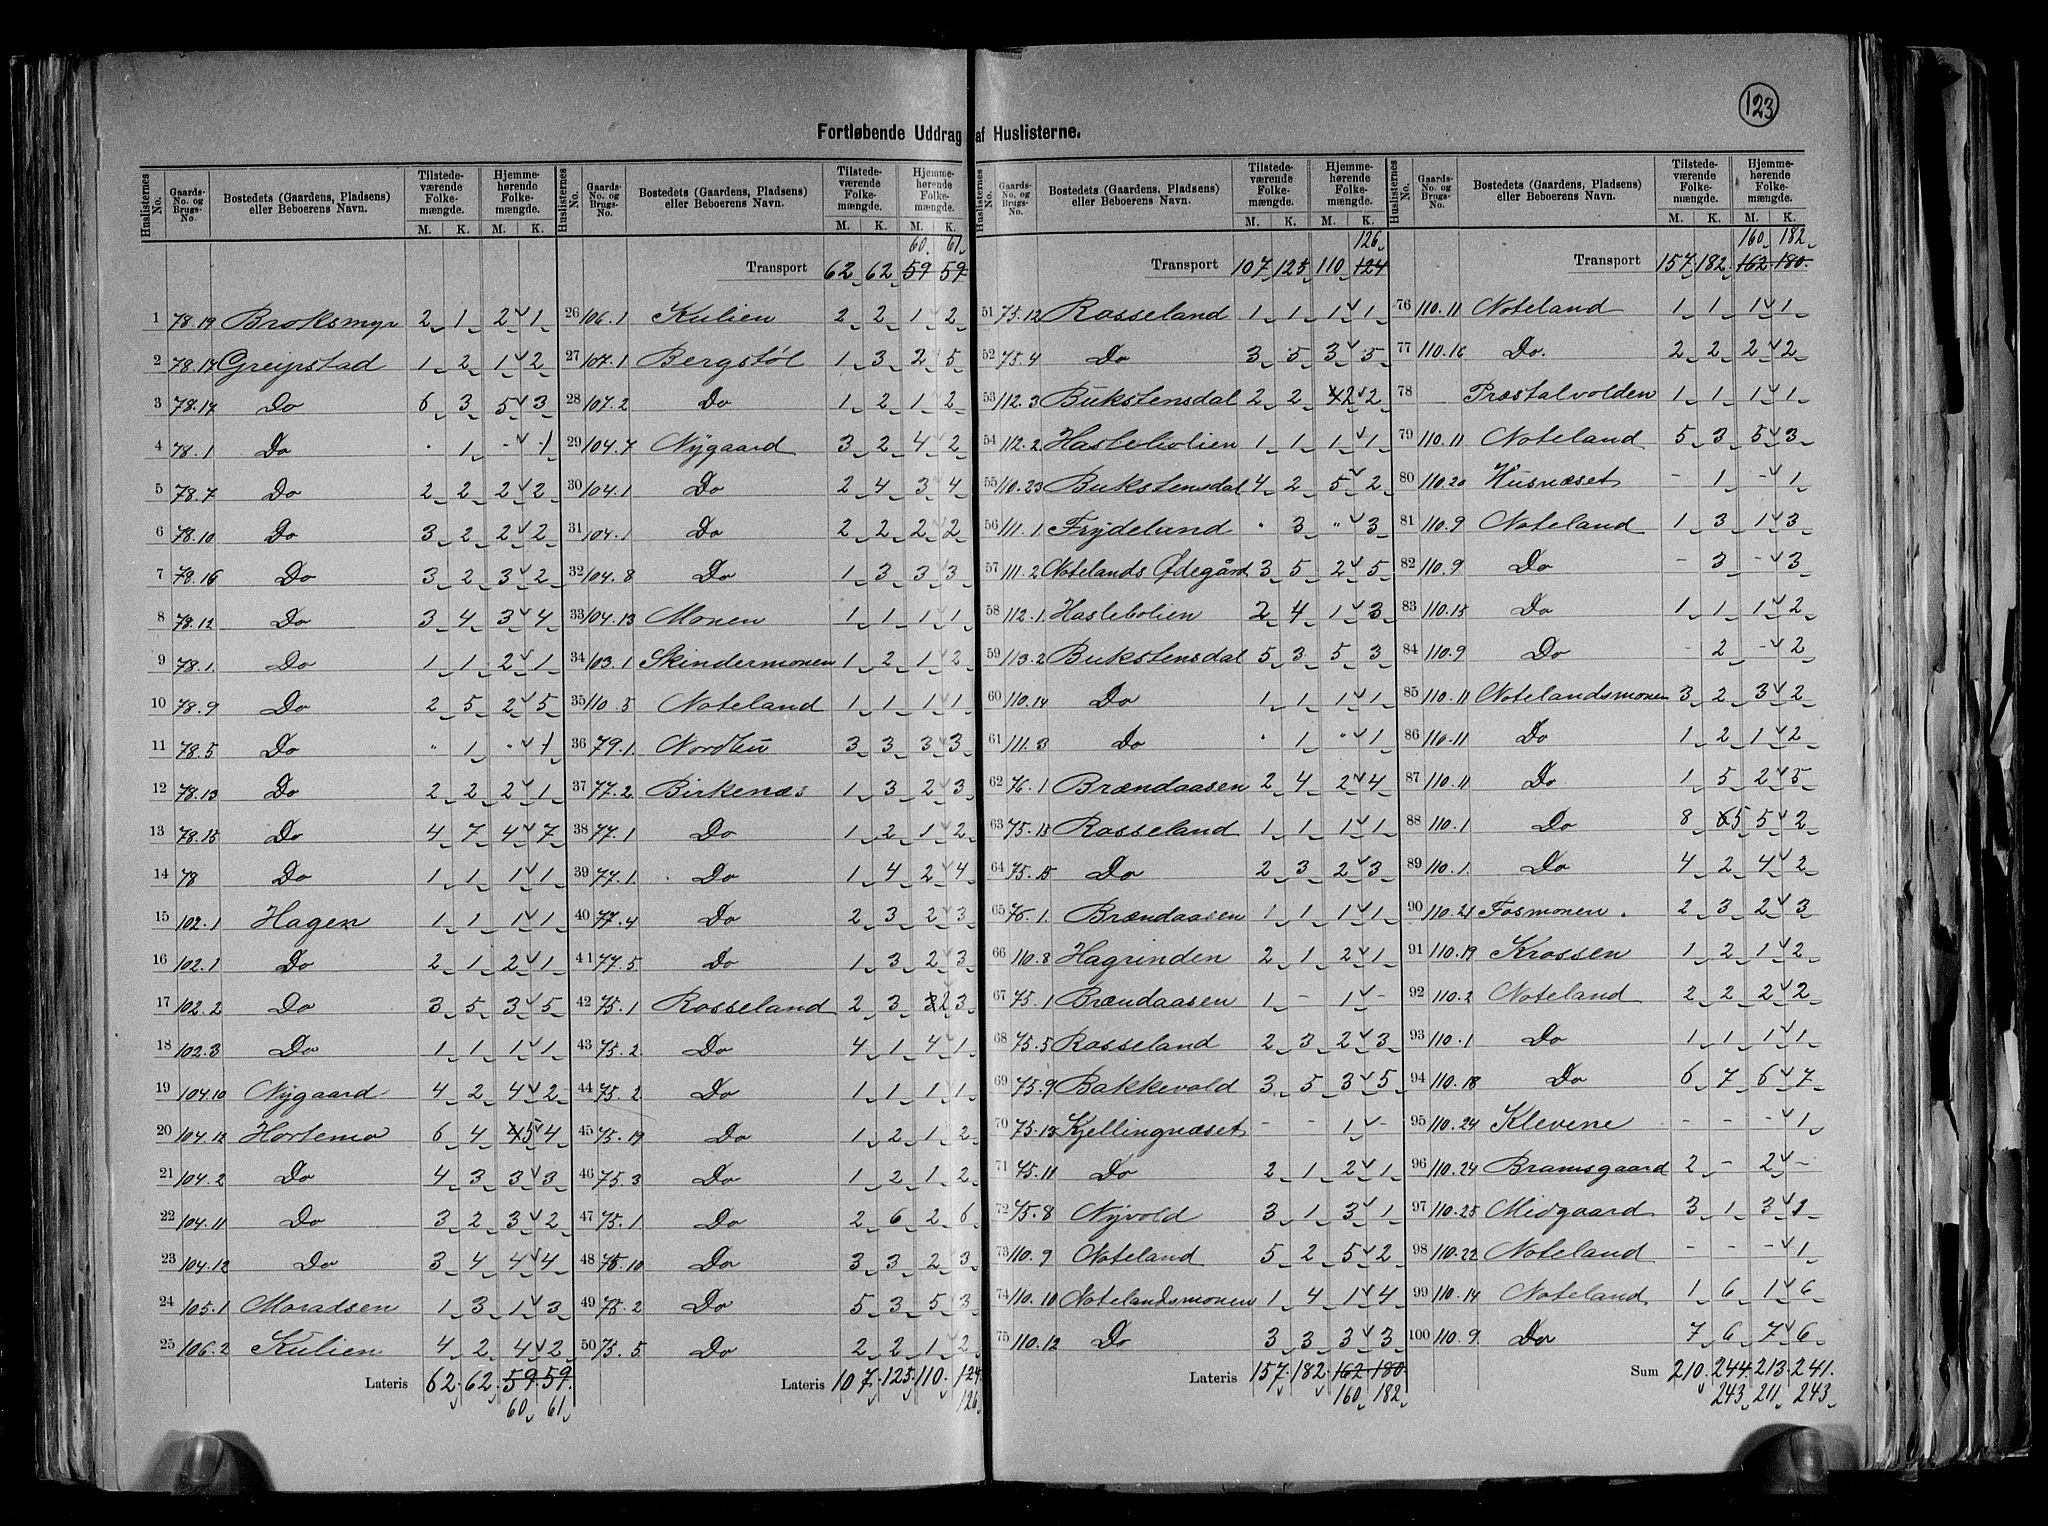 123
Fortløbende Uddrag af Huslisterne.
Huslisternes No. | Gaards-No. og Brugs-No. | Bostedets (Gaardens, Pladsens) eller Beboerens Navn. | Tilstedeværende Folkemængde. M. K. | Hjemmehørende Folkemængde. M. K.
1 78.19 Broksmyr 2 1 2 1
2 78.17 Greipstad 1 2 1 2
3 78.17 Do 6 3 5 3
4 78.1 Do . 1 - 1
5 78.7 Do 2 2 2 2
6 78.10 Do 3 2 2 2
7 78.16 Do 3 2 3 2
8 78.12 Do 3 4 3 4
9 78.1 Do 1 1 2 1
10 78.9 Do 2 5 2 5
11 78.5 Do " 1 " 1
12 78.13 Do 2 2 2 1
13 78.15 Do 4 7 4 7
14 78 Do 1 1 1 1
15 102.1 Hagen 1 1 1 1
16 102.1 Do 2 1 2 1
17 102.2 Do 3 5 3 5
18 102.3 Do 1 1 1 1
19 104.10 Nygaard 4 2 4 2
20 104.12 Hortemo 6 4 5 4
21 104.2 Do 4 3 3 3
22 104.11 Do 3 2 3 2
23 104.12 Do 3 4 4 4
24 105.1 Moradsen 1 3 1 3
25 106.2 Kulien 4 2 4 2
Lateris 62. 62. 59. 59.
60 61
Huslisternes No. | Gaards-No. og Brugs-No. | Bostedets (Gaardens, Pladsens) eller Beboerens Navn. | Tilstedeværende Folkemængde. M. K. | Hjemmehørende Folkemængde. M. K.
60 61
Transport 62 62 59 59
26 106.1 Kulien 2 2 1 2
27 107.1 Bergstøl 1 3 2 5
28 107.2 Do 1 2 1 2
29 104.7 Nygaard 3 2 4 2
30 104.1 Do 2 4 3 4
31 104.1 Do 2 2 2 2
32 104.8 Do 1 3 3 3
33 104.13 Monen 1 1 1 1
34 103.1 Skindermonen 1 2 1 2
35 110.5 Noteland 1 1 1 1
36 79.1 Nordbu 3 3 3 3
37 77.2 Birkenæs 1 3 2 3
38 77.1 Do 1 2 1 2
39 77.1 Do 1 4 2 4
40 77.4 Do 2 3 2 3
41 77.5 Do 1 3 2 3
42 75.1 Rosseland 2 3 2 3
43 75.2 Do 4 1 4 1
44 75.2 Do 1 1 1 1
45 75.19 Do 1 2 1 2
46 75.3 Do 1 2 1 2
47 75.1 Do 2 6 2 6
48 75.10 Do 3 3 2 3
49 75.2 Do 5 3 5 3
50 75.5 Do 2 2 1 2
Lateris 107. 125. 110. 124.
126
Huslisternes No. | Gaards-No. og Brugs-No. | Bostedets (Gaardens, Pladsens) eller Beboerens Navn. | Tilstedeværende Folkemængde. M. K. | Hjemmehørende Folkemængde. M. K.
126
Transport 107 125 110 124
51 75.12 Rosseland 1 1 1 1
52 75.4 Do 3 5 3 5
53 112.3 Bukstensdal 2 2 2 2
54 112.2 Haslebolien 1 1 1 1
55 110.23 Bukstensdal 4 2 5 2
56 111.1 Frydeland " 3 " 3
57 111.2 Notelands Ødegård 3 5 2 5
58 112.1 Haslebolien 2 4 1 3
59 113.2 Bukstensdal 5 3 5 3
60 110.14 Do 1 1 1 1
61 111.3 Do " 1 " 1
62 76.1 Brændaasen 2 4 2 4
63 75.13 Rosseland 1 1 1 1
64 75.15 Do 2 3 2 3
65 76.1 Brændaasen 1 1 1 1
66 110.8 Hagrinden 2 1 2 1
67 75.1 Brændaasen 1 - 1 -
68 75.5 Rosseland 2 3 2 3
69 75.9 Bakkevold 3 5 3 5
70 75.13 Kjellingnæset - - 1 -
71 75.11 Do 2 1 2 1
72 75.8 Nyvold 3 1 3 1
73 110.9 Noteland 5 2 5 2
74 110.10 Notelandsmonen 1 4 1 4
75 110.12 Do 3 3 3 3
Lateris 157. 182. 162 180.
160 182
Huslisternes No. | Gaards-No. og Brugs-No. | Bostedets (Gaardens, Pladsens) eller Beboerens Navn. | Tilstedeværende Folkemængde. M. K. | Hjemmehørende Folkemængde. M. K.
160 182
Transport 157. 182. 162 180.
76 110.11 Noteland 1 1 1 1
77 110.16 Do. 2 2 2 2
78 Præstalvolden 1 1 1 1
79 110.11 Noteland 5 3 5 3
80 110.20 Husnæset - 1 - 1
81 110.9 Noteland 1 3 1 3
82 110.9 Do - 3 - 3
83 110.15 Do 1 1 1 2
84 110.9 Do - 2 - 2
85 110.11 Notelandsmonen 3 2 3 2
86 110.11 Do 1 2 1 2
87 110.11 Do 1 5 2 5
88 110.1 Do 8 5 5 2
89 110.1 Do 4 2 4 2
90 110.21 Fosmonen. 2 3 2 3
91 110.19 Krossen 1 2 1 2
92 110.2 Noteland 2 2 2 2
93 110.1 Do 1 1 1 1
94 110.18 Do 6 7 6 7
95 110.24 Klevene - - - 1
96 110.24 Bramsgaard 2 - 2 -
97 110.25 Midgaard 3 1 3 1
98 110.22 Noteland - - - 1
99 110.14 Noteland 1 6 1 6
100 110.9 Do 7 6 7 6
Sum 210. 244. 213. 241.
243 211 243